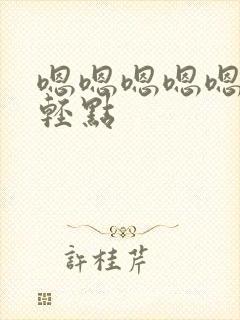 嗯嗯嗯嗯嗯
輕點
許桂芹